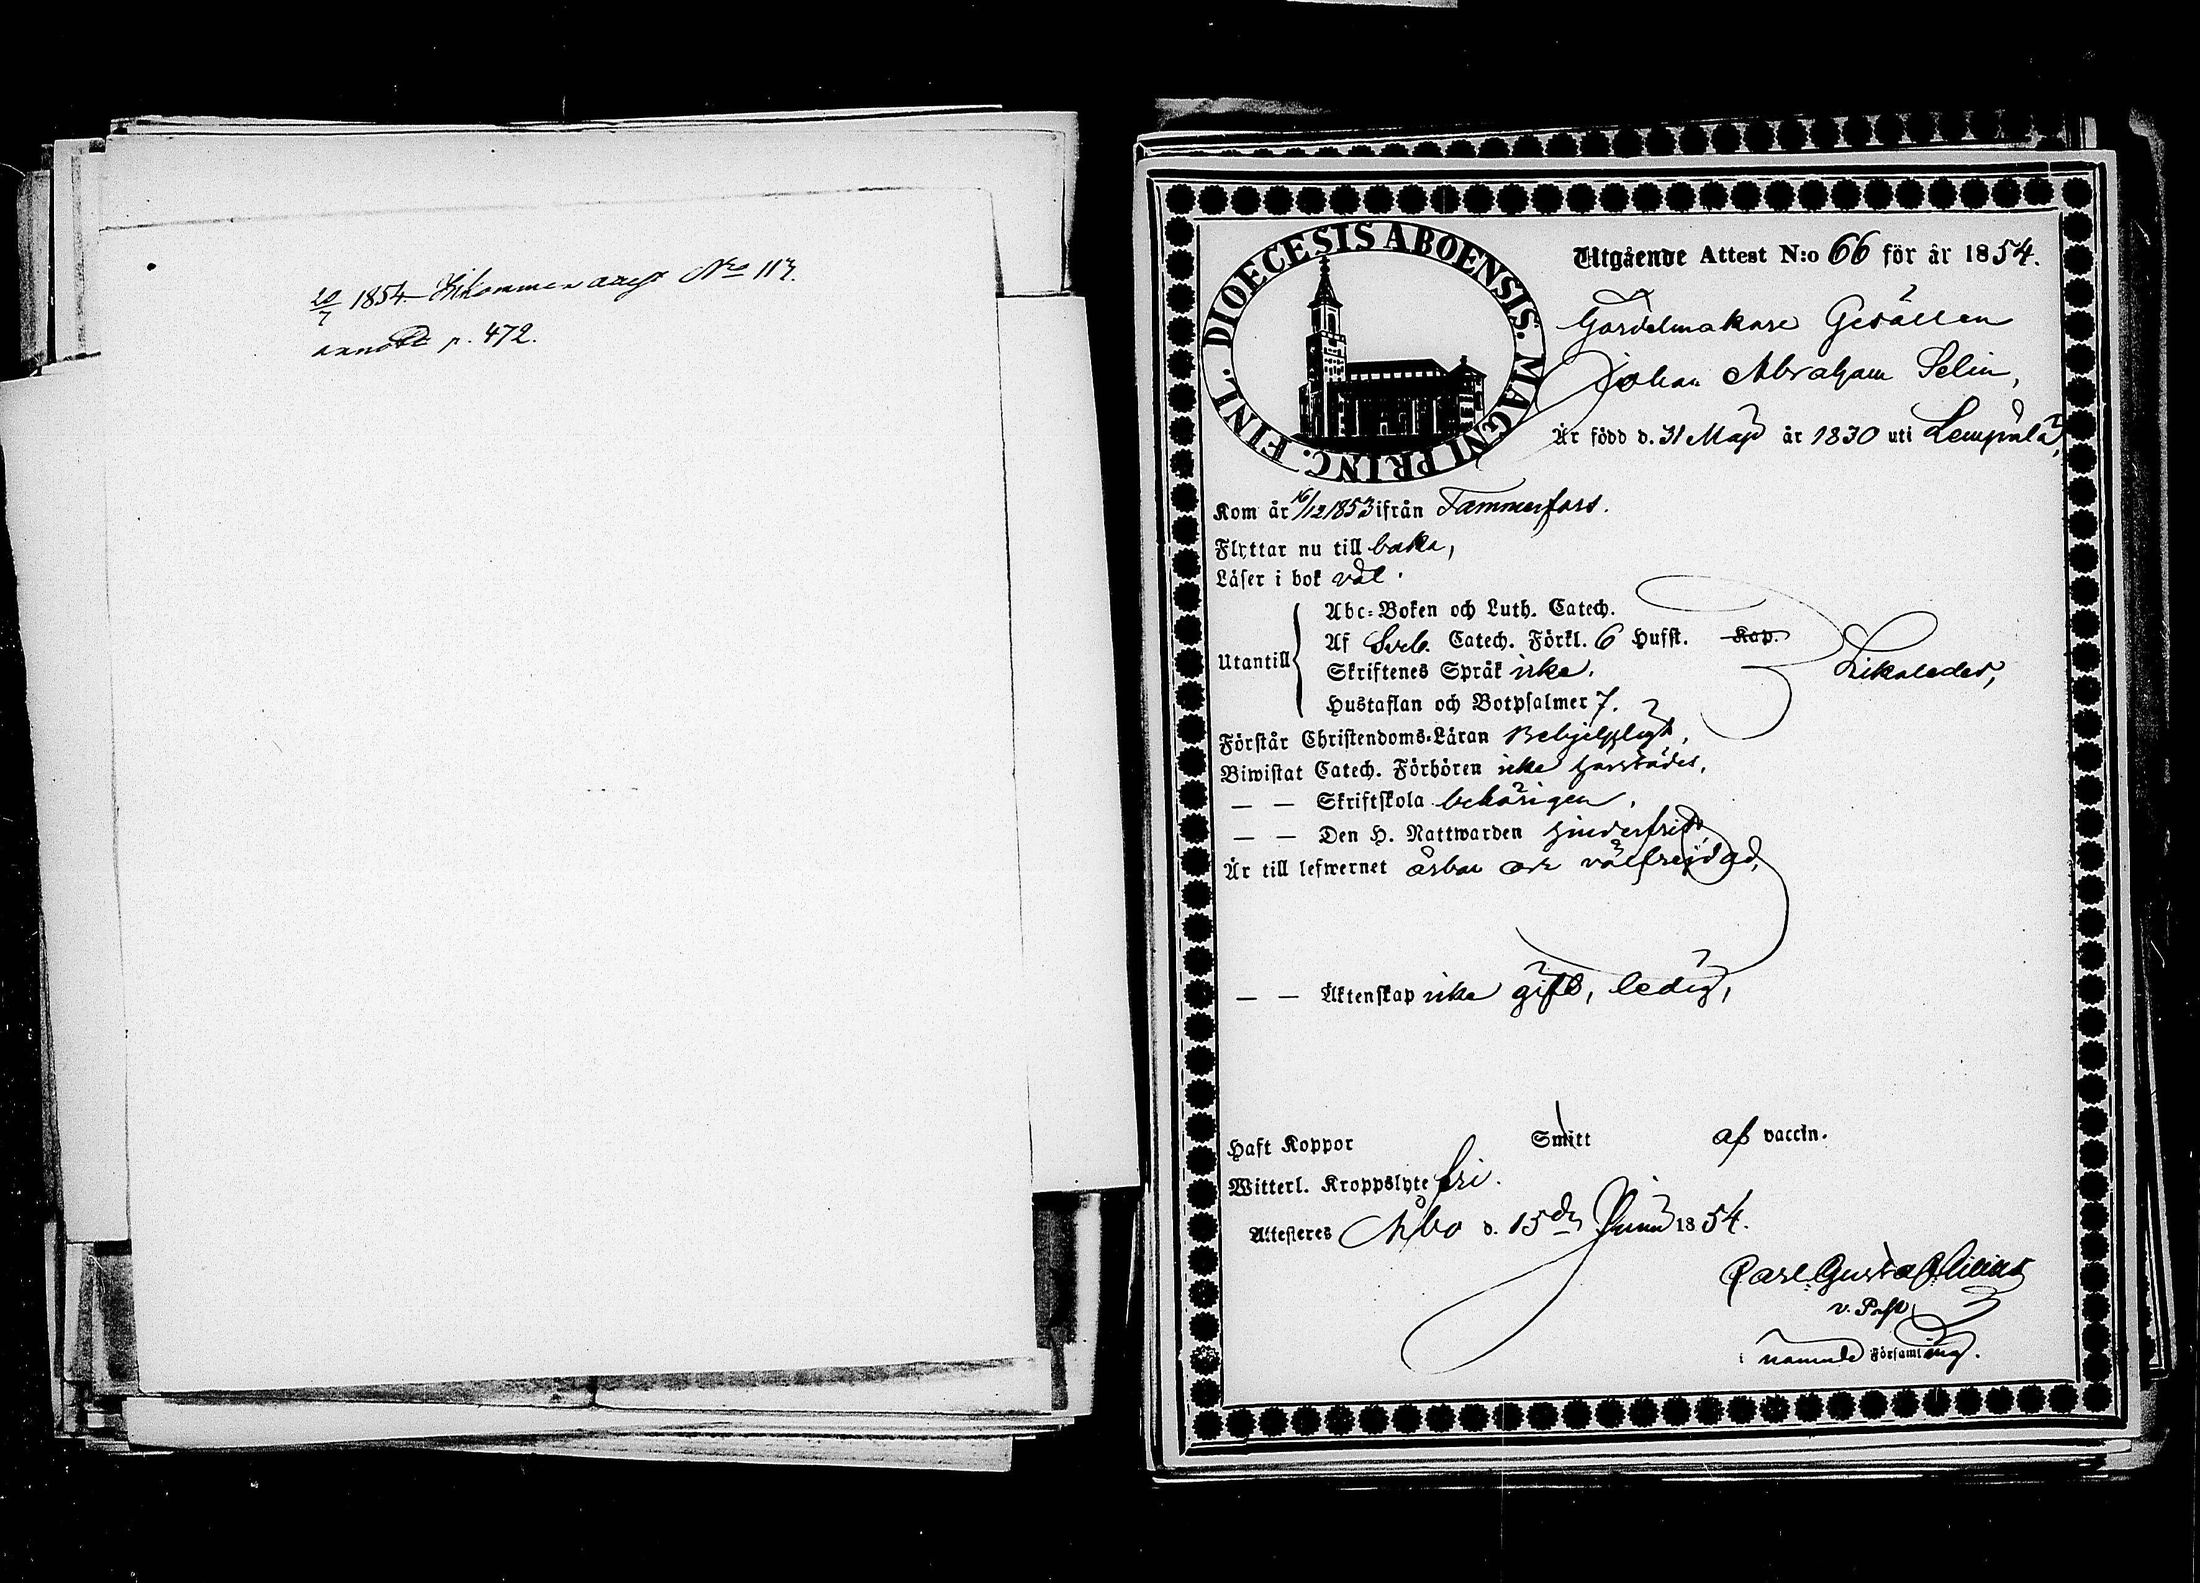 20/7 1854. Inkommen attest No 117.
annott p. 472.
DIOECESIS ABOENSIS. MAGNI PRINC. FINL.
Utgående Attest N:o 66 för år 1854.
Gördelmakare Gesällen
Johan Abraham Selin,
Är född d. 31 Maji år 1830 uti Lempälä,
Kom år 16/12 1853 ifrån Tammerfors.
Flyttar nu till baka,
Läser i bok väl.
Utantill
Abc-Boken och Luth. Catech.
Af Sveb. Catech. Förkl. 6 Hufst. Kap.
Skriftenes Språk icke.
Hustaflan och Botpsalmer 7.
Likaledes,
Förstår Christendoms-Läran Behjelpligt,
Biwistat Catech. Förhören icke härstädes,
— — Skriftskola behörigen,
— — Den H. Nattwarden hinderfri
Är till lefwernet ärbar och välfrejdad,
— — Äktenskap icke gift, ledig,
Haft Koppor Smitt af vaccin.
Witterl. Kroppslyte fri.
Attesteres Åbo d. 15de Junii 1854.
Carl Gustaf
v. Past.
i nämnde Församling.